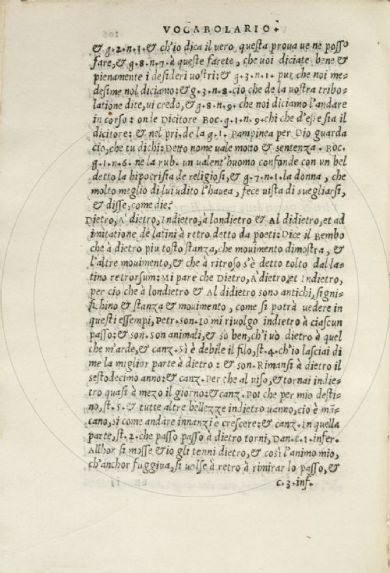 VOCABOLARIO.
& g.2.n.3.& ch'io dica il vero, questa prova ve ne posso
fare, & g.8.n.7.à queste farete, che voi diciate bene &
pienamente i desideri vostri:& g.3.n.1. pur che noi me-
desime nol diciamo:& g.3.n.8.cio che de la vostra tribo-
latione dite, vi credo, & g.8.n.9.che noi diciamo l'andare
in corso: onde Dicitore Boc.g.1.n.9.chi che d'esse sia il
dicitore: & nel pri.de la g.1. Pampinea per Dio guarda
cio, che tu dichi: Detto nome vale motto & sentenza. Boc.
g.1.n.6. ne la rub. un valent'huomo confonde con un bel
detto la hipocrisia de religiosi, & g.7.n.1.la donna, che
molto meglio di lui udito l'havea, fece vista di svegliarsi,
& disse, come die?
Dietro, A dietro, Indietro, à londietro & Al didietro, et ad
imitatione de latini à retro detto da poeti: Dice il Bembo
che à dietro piu tosto stanza, che movimento dimostra, &
l'altre movimento, & che à ritroso s'è detto tolto dal la-
tino retrorsum: Mi pare che Dietro, A dietro, et Indietro,
per cio che à londietro & Al didietro sono antichi, signi-
fichino & stanza & movimento, come si potrà vedere in
questi essempi, Petr.son.Io mi rivolgo indietro à ciascun
passo:& son.son animali, & sò ben, ch'i vò dietro à quel
che m'arde, & canz.Sì è debile il filo, st.4.ch'io lasciai di
me la miglior parte à dietro: & son.Rimansi à dietro il
sestodecimo anno:& canz.Per che al viso, & tornai indie-
tro quasi à mezo il giorno:& canz.Poi che per mio desti-
no, st.5.& tutte altre bellezze indietro vanno, cio è mã-
cano, si come andare innanzi è crescere:& canz.In quella
parte, st.2.che passo passo à dietro torni, Dan.c.1.infer.
Allhor si mosse & io gli tenni dietro, & così l'animo mio,
ch'anchor fuggiva, si volse à retro à rimirar lo passo, &
c.3.inf.